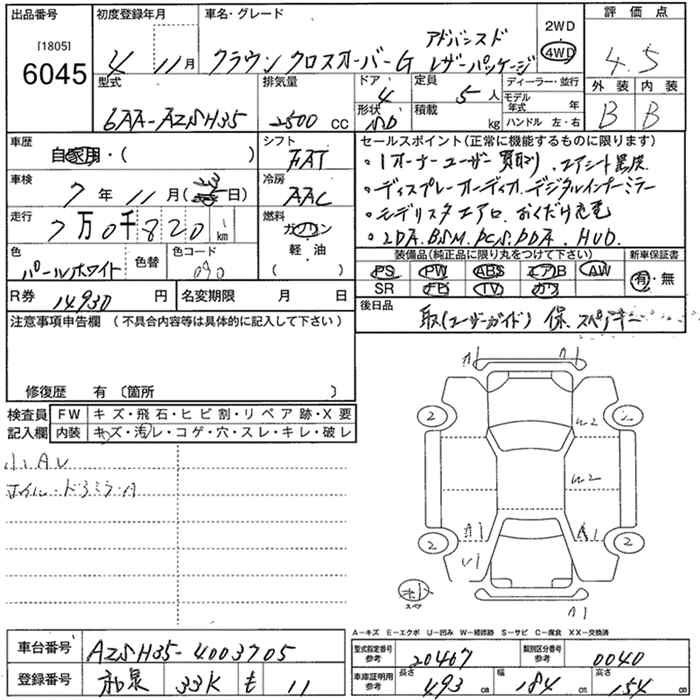 出品番号 初度登録年月 車名・グレード 2WD 評価点
[1805] アドバンスド
6045 4 11月 クラウン クロスオーバーG レザーパッケージ 4WD 4.5
型式 排気量 ドア 定員 ディーラー・並行 外装 内装
6AA-AZSH35 2500 cc 4 5人 モデル年式 年 B B
形状 積載 kg ハンドル 左・右
SD
車歴 シフト セールスポイント(正常に機能するものに限ります)
自家用・( ) FAT ・1オーナーユーザー買取り、エアシート黒皮
車検 冷房 ・ディスプレーオーディオ.デジタルインナーミラー
7年 11月( 日) AAC ・モデリスタエアロ.おくだけ充電
走行 燃料 ・LDA.BSM.PCS.PDA.HUD.
7万0千820 km ガソリン
軽・油
( )
色 色替 色コード 装備品(純正品に限り丸をつけて下さい) 新車保証書
パールホワイト 090 PS PW ABS エアB AW 有・無
SR FB TV カワ
R券 14930円 名変期限 月 日 後日品
取(ユーザーガイド) 保、スペアキー
注意事項申告欄 (不具合内容等は具体的に記入して下さい)
修復歴 有 〔箇所 〕
検査員 FW キズ・飛石・ヒビ割・リペア跡・X要
記入欄 内装 キズ・汚レ・コゲ・穴・スレ・キレ・破レ
小:AU
ホイル・ドアミラーA
A1 A1
2 2
W2
W2
A1 A1
2 2
U1
スペア
A1
A-キズ E-エクボ U-凹み W-補修跡 S-サビ C-腐食 XX-交換済
車台番号 AZSH35-4003705 型式指定番号 参考 20467 類別区分番号 参考 0040
登録番号 和泉 33K も 11 車庫証明用 参考 長さ 493 cm 幅 184 cm 高さ 154 cm